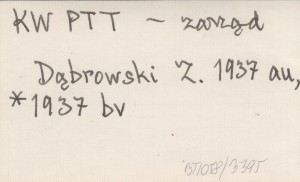 KW PTT – zarząd
Dąbrowski Z. 1937 au,
* 1937 bv